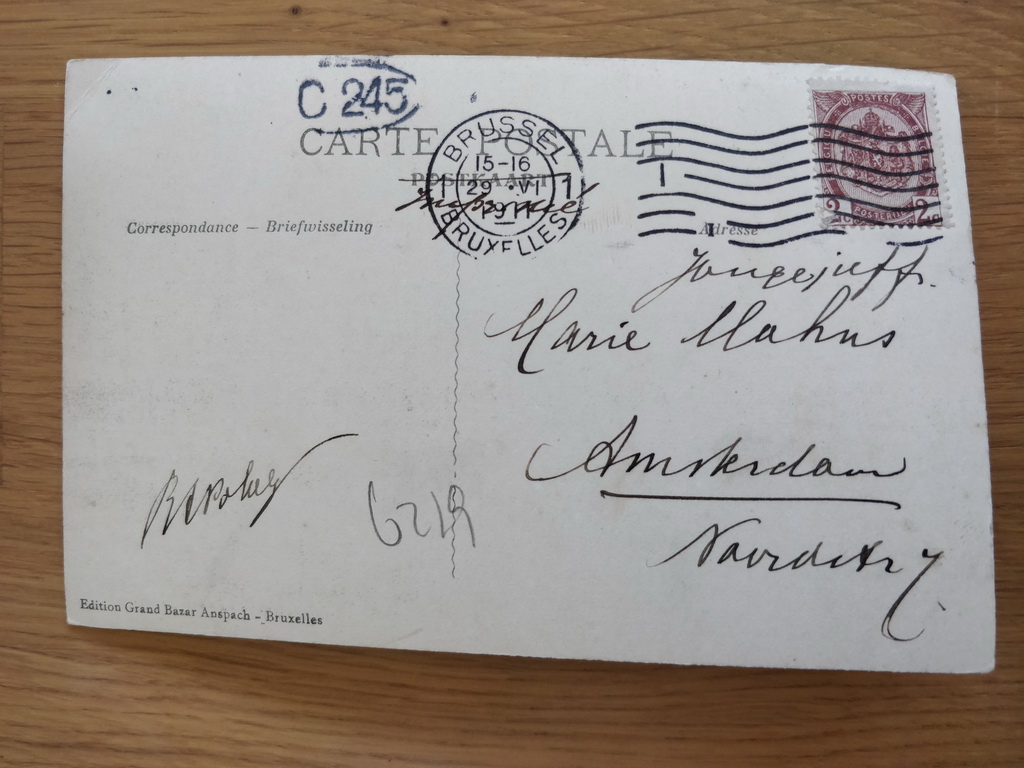 C 245
CARTE POSTALE
POSTKAART
Imprimé
BRUSSEL
15-16
1 29 VI 1
1911
BRUXELLES
POSTES
2 2
Correspondance — Briefwisseling
Adresse
Jongejuff.
Marie Mahns
Amsterdam
Noordstr 7
6219
Edition Grand Bazar Anspach - Bruxelles